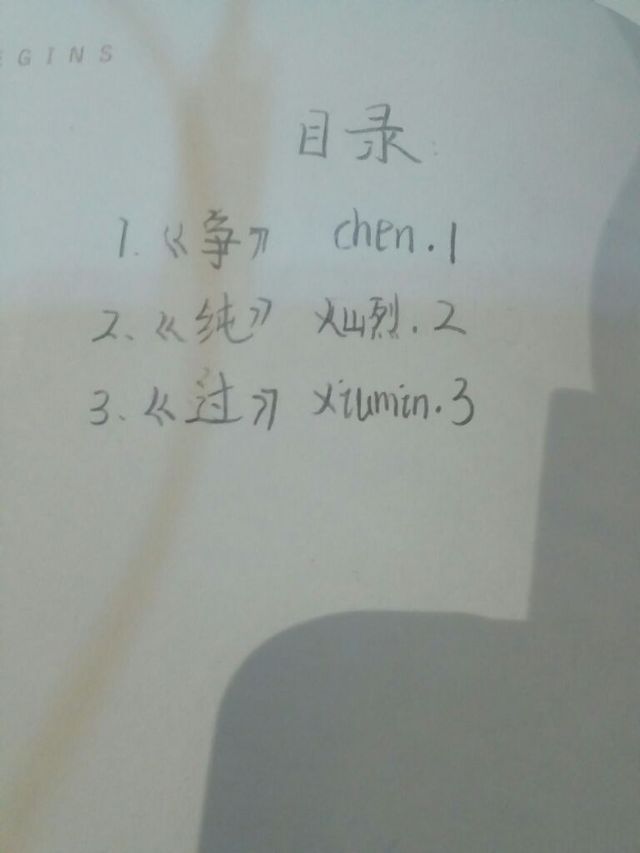 EGINS
目录:
1.《争》 chen.1
2、《纯》 灿烈.2
3、《过》 xiumin.3